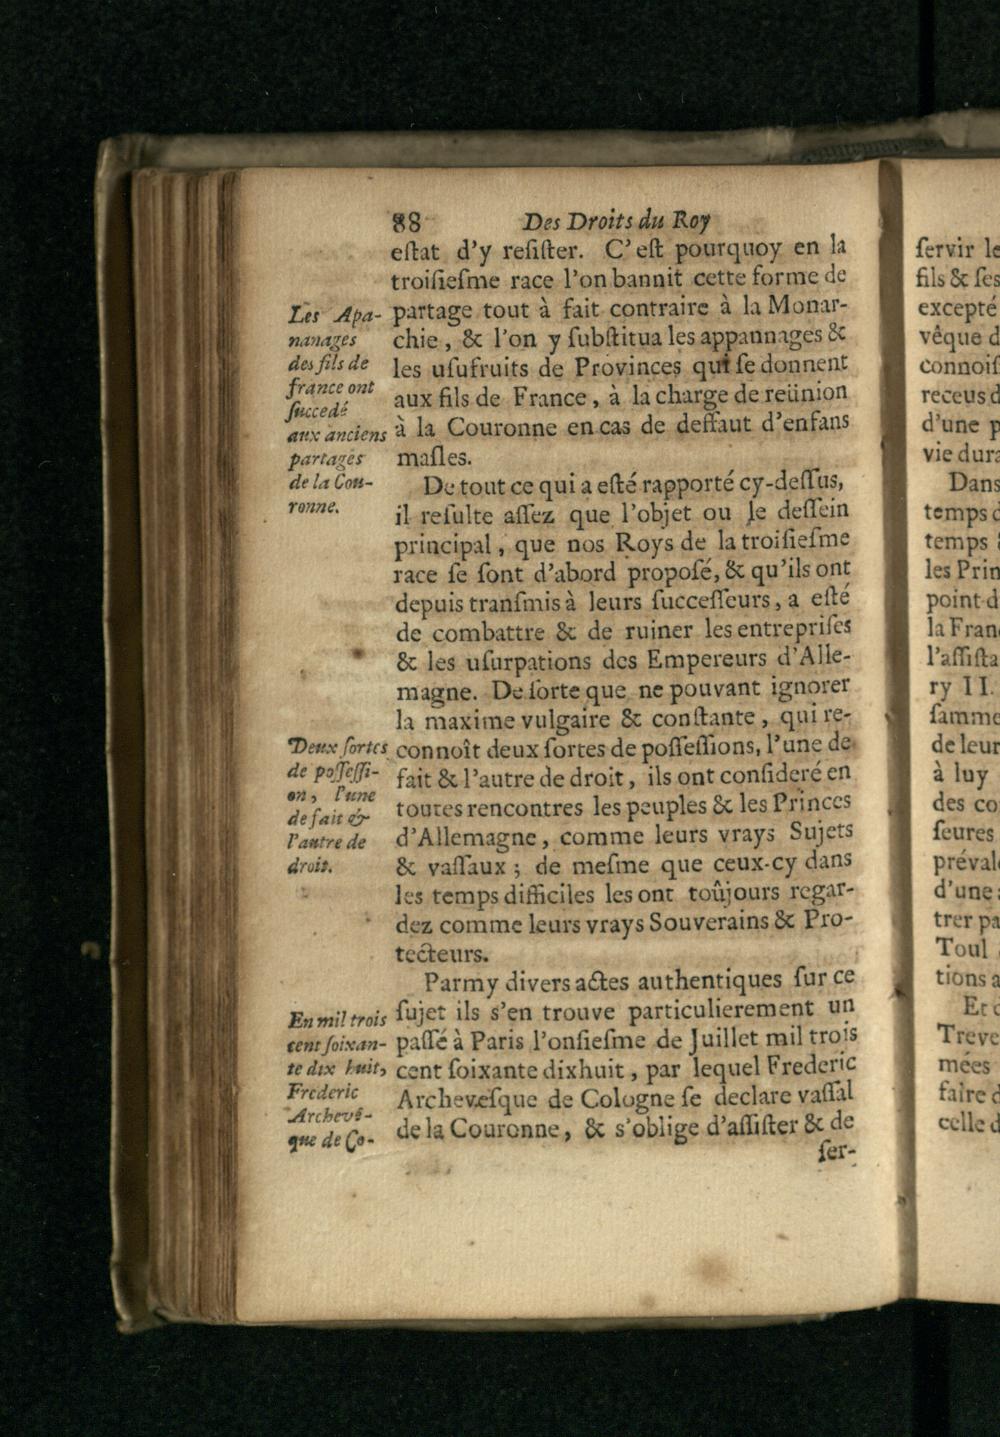 88 Des Droits du Roy
eſtat d'y reſiſter. C'eſt pourquoy en la
troiſieſme race l'on bannit cette forme de
partage tout à fait contraire à la Monar-
chie, & l'on y ſubſtitua les appannages &
les uſufruits de Provinces qui ſe donnent
aux fils de France, à la charge de reünion
à la Couronne en cas de deffaut d'enfans
maſles.
De tout ce qui a eſté rapporté cy-deſſus,
il reſulte aſſez que l'objet ou le deſſein
principal, que nos Roys de la troiſieſme
race ſe ſont d'abord propoſé, & qu'ils ont
depuis tranſmis à leurs ſucceſſeurs, a eſté
de combattre & de ruiner les entrepriſes
& les uſurpations des Empereurs d'Alle-
magne. De ſorte que ne pouvant ignorer
la maxime vulgaire & conſtante, qui re-
connoît deux ſortes de poſſeſſions, l'une de
fait & l'autre de droit, ils ont conſideré en
toutes rencontres les peuples & les Princes
d'Allemagne, comme leurs vrays Sujets
& vaſſaux; de meſme que ceux-cy dans
les temps difficiles les ont toûjours regar-
dez comme leurs vrays Souverains & Pro-
tecteurs.
Parmy divers actes authentiques ſur ce
ſujet ils s'en trouve particulierement un
paſſé à Paris l'onſieſme de Juillet mil trois
cent ſoixante dixhuit, par lequel Frederic
Archeveſque de Cologne ſe declare vaſſal
de la Couronne, & s'oblige d'aſſiſter & de
ſer-
Les Apa-
nanages
des fils de
france ont
ſuccedé
aux anciens
partages
de la Cou-
ronne.
Deux ſortes
de poſſeſſi-
on, l'une
de fait &
l'autre de
droit.
En mil trois
cent ſoixan-
te dix huit,
Frederic
Archevé-
que de Co-
ſervir le
fils & ſes
excepté
vêque d
connoiſ
receus d
d'une p
vie dura
Dans
temps d
temps
les Prin
point d
la Fran
l'aſſiſta
ry II.
ſamme
de leur
à luy
des co
ſeures
préval
d'une
trer pa
Toul
tions a
Et
Treve
mées
faire d
celle d